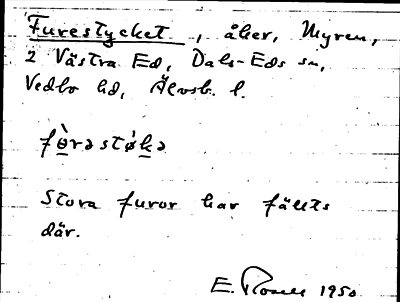 Furestycket, åker, Myren,
2 Västra Ed, Dals-Eds sn,
Vedbo hd, Älvsb. l.
fɵ̀rəstøkə
Stora furor har fällts
där.
E. Rosell 1950